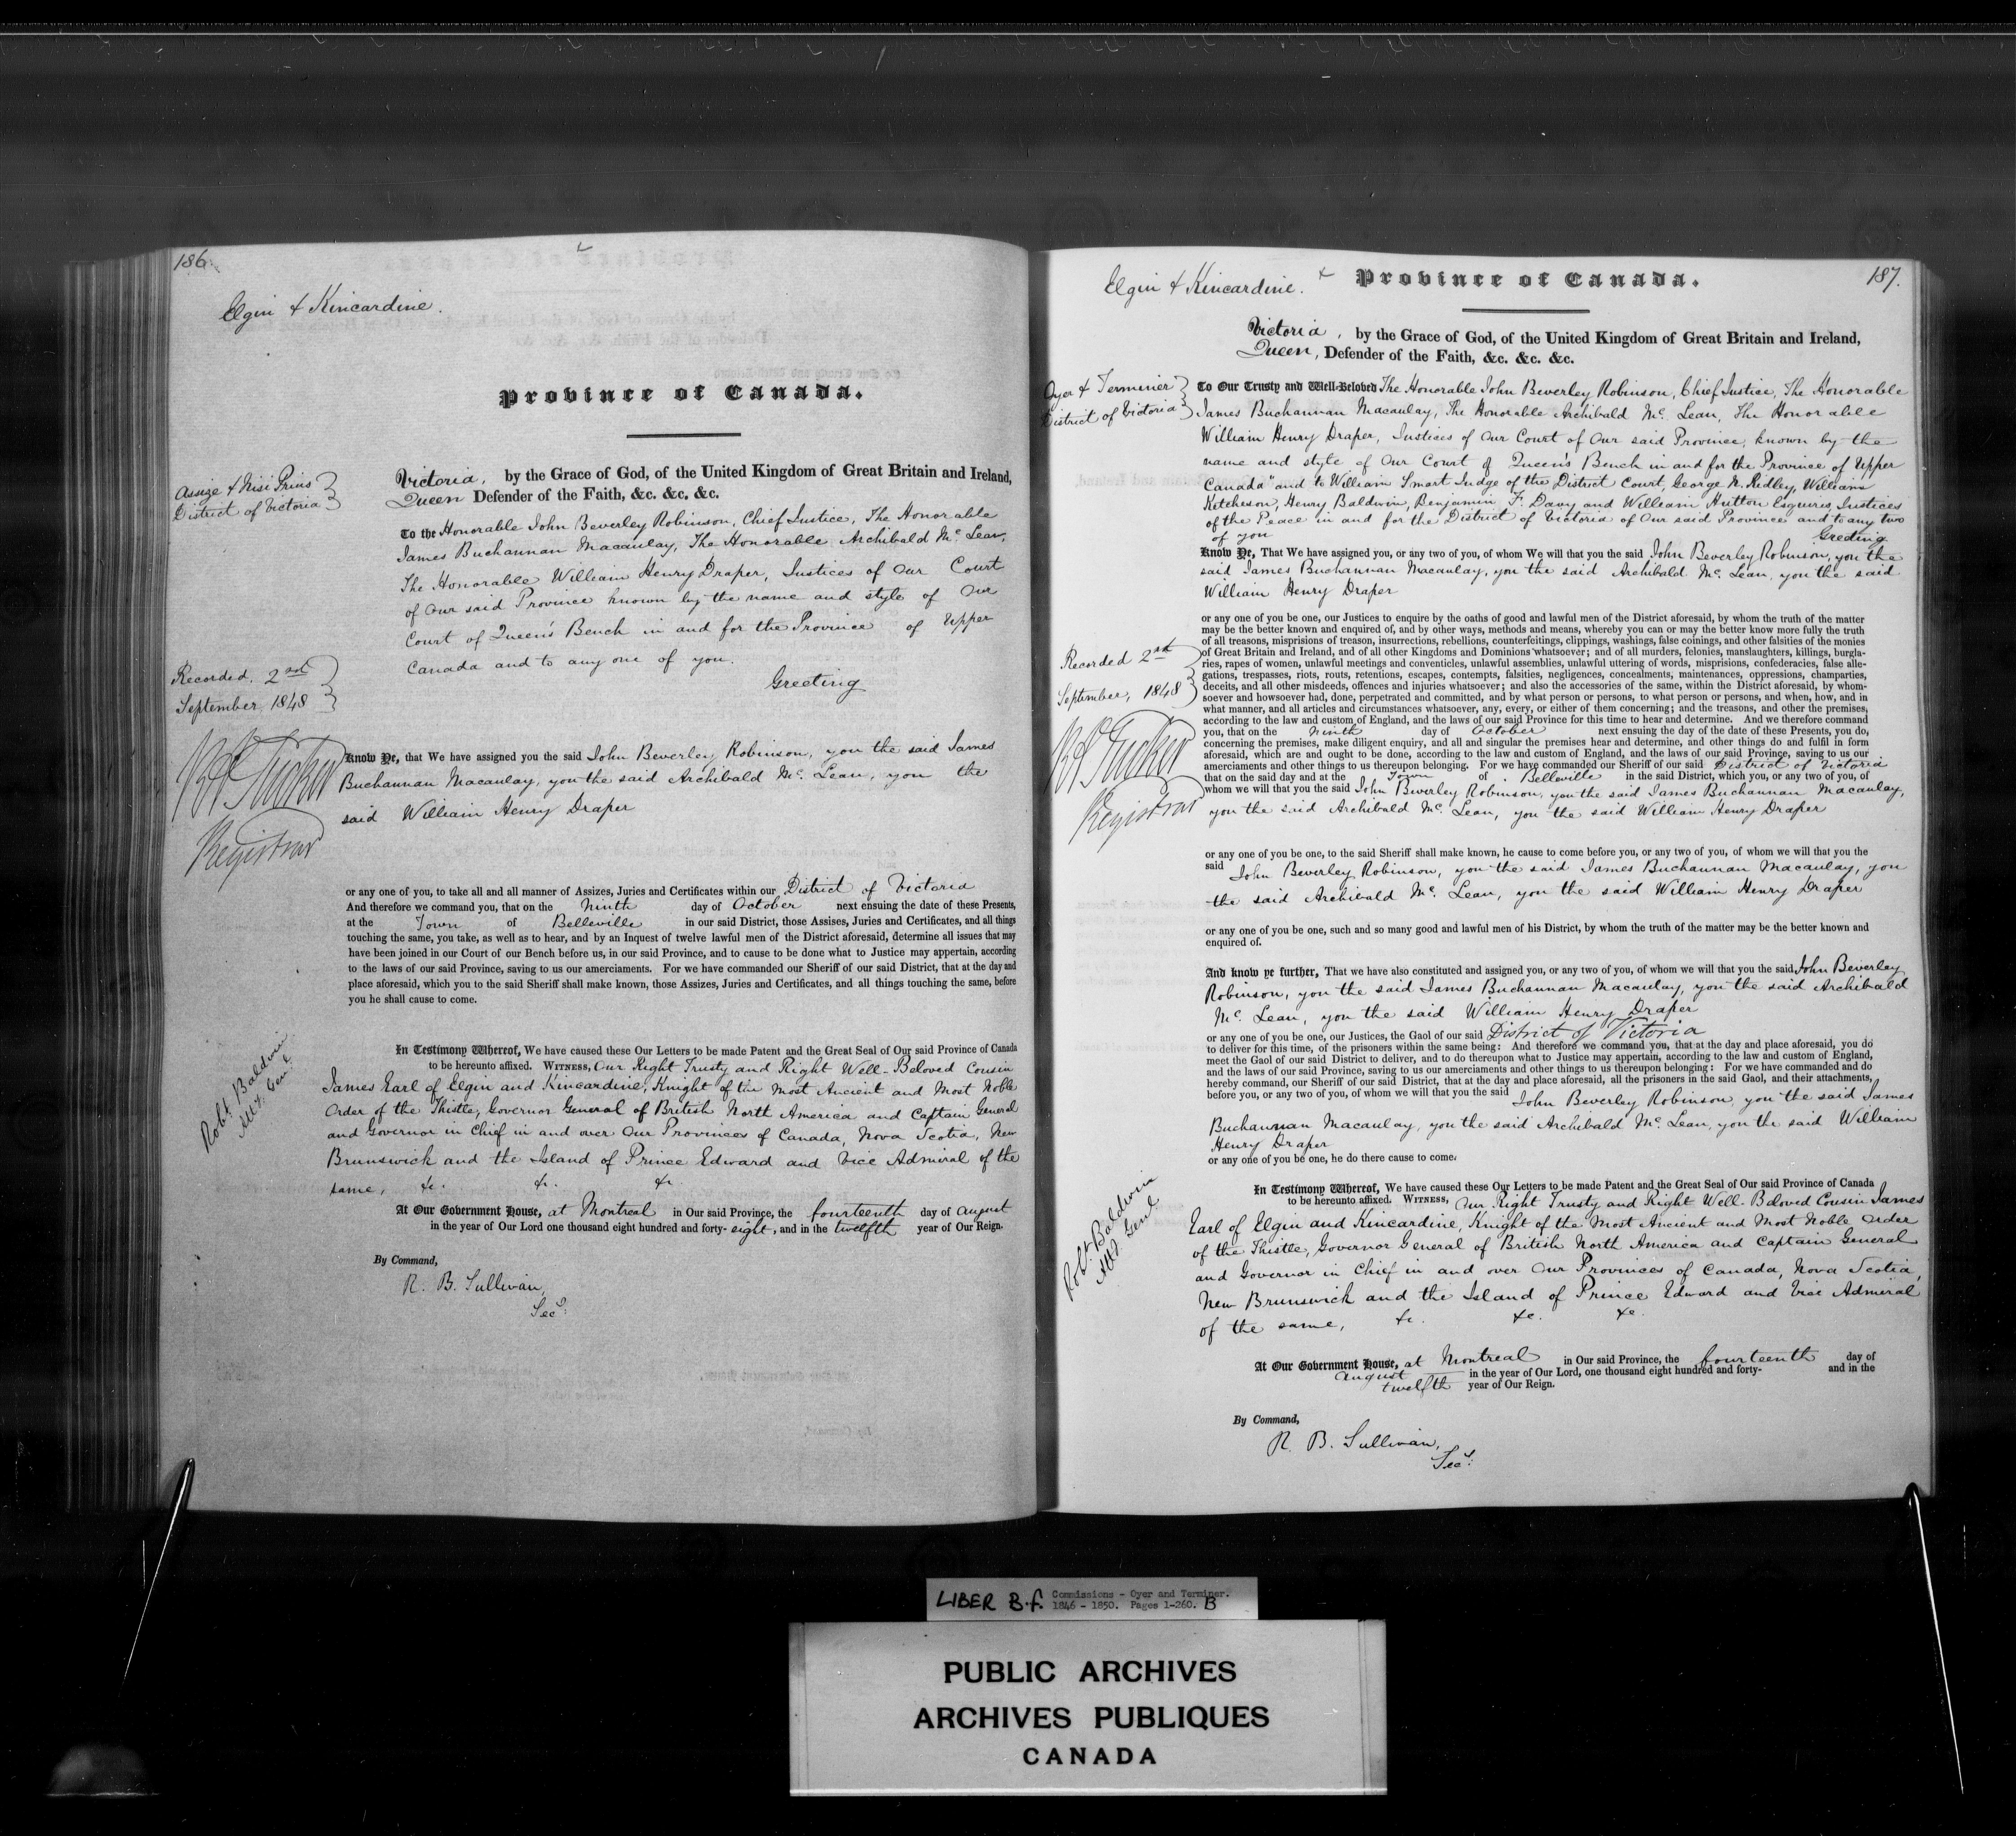 186.
Elgin & Kincardine.
Province of Canada.
Assize & Nisi Prius
District of Victoria
Victoria, by the Grace of God, of the United Kingdom of Great Britain and Ireland,
Queen Defender of the Faith, &c. &c, &c.
To the Honorable John Beverley Robinson, Chief Justice, The Honorable
James Buchannan Macaulay, The Honorable Archibald Mc. Lean,
The Honorable William Henry Draper, Justices of Our Court
of Our said Province known by the name and style of Our
Court of Queen's Bench in and for the Province of Upper
Canada and to any one of you.
Greeting
Recorded. 2nd
September, 1848
Registrar
Know Ye, that We have assigned you the said John Beverley Robinson, you the said James
Buchannan Macaulay, you the said Archibald Mc. Lean, you the
said William Henry Draper
or any one of you, to take all and all manner of Assizes, Juries and Certificates within our District of Victoria
And therefore we command you, that on the Ninth day of October next ensuing the date of these Presents,
at the Town of Belleville in our said District, those Assises, Juries and Certificates, and all things
touching the same, you take, as well as to hear, and by an Inquest of twelve lawful men of the District aforesaid, determine all issues that may
have been joined in our Court of our Bench before us, in our said Province, and to cause to be done what to Justice may appertain, according
to the laws of our said Province, saving to us our amerciaments. For we have commanded our Sheriff of our said District, that at the day and
place aforesaid, which you to the said Sheriff shall make known, those Assizes, Juries and Certificates, and all things touching the same, before
you he shall cause to come.
Robt. Baldwin
Att. Genl.
In Testimony Whereof, We have caused these Our Letters to be made Patent and the Great Seal of Our said Province of Canada
to be hereunto affixed. Witness, Our Right Trusty and Right Well-Beloved Cousin
James Earl of Elgin and Kincardine, Knight of the Most Ancient and Most Noble
Order of the Thistle, Governor General of British North America and Captain General
and Governor in Chief in and over Our Provinces of Canada, Nova Scotia, New
Brunswick and the Island of Prince Edward and Vice Admiral of the
same, &c. &c. &c.
At Our Government House, at Montreal in Our said Province, the fourteenth day of August
in the year of Our Lord one thousand eight hundred and forty-eight, and in the twelfth year of Our Reign.
By Command,
R. B. Sullivan,
Secy.
187.
Elgin & Kincardine.
Province of Canada.
Victoria, by the Grace of God, of the United Kingdom of Great Britain and Ireland,
Queen, Defender of the Faith, &c. &c. &c.
Oyer & Terminer
District of Victoria
To Our Trusty and Well-Beloved The Honorable John Beverley Robinson, Chief Justice, The Honorable
James Buchannan Macaulay, The Honorable Archibald Mc. Lean, The Honorable
William Henry Draper, Justices of Our Court of Our said Province, known by the
name and style of Our Court of Queen's Bench in and for the Province of Upper
Canada" and to William Smart Judge of the District Court, George N. Ridley, William
Ketcheson, Henry Baldwin, Benjamin F. Davy and William Hutton Esquires, Justices
of the Peace in and for the District of Victoria of Our said Province and to any two
of you Greeting
Know Ye, That We have assigned you, or any two of you, of whom We will that you the said John Beverley Robinson, you the
said James Buchannan Macaulay, you the said Archibald Mc. Lean, you the said
William Henry Draper
or any one of you be one, our Justices to enquire by the oaths of good and lawful men of the District aforesaid, by whom the truth of the matter
may be the better known and enquired of, and by other ways, methods and means, whereby you can or may the better know more fully the truth
of all treasons, misprisions of treason, insurrections, rebellions, counterfeitings, clippings, washings, false coinings, and other falsities of the monies
of Great Britain and Ireland, and of all other Kingdoms and Dominions whatsoever; and of all murders, felonies, manslaughters, killings, burgla-
ries, rapes of women, unlawful meetings and conventicles, unlawful assemblies, unlawful uttering of words, misprisions, confederacies, false alle-
gations, trespasses, riots, routs, retentions, escapes, contempts, falsities, negligences, concealments, maintenances, oppressions, champarties,
deceits, and all other misdeeds, offences and injuries whatsoever; and also the accessories of the same, within the District aforesaid, by whom-
soever and howsoever had, done, perpetrated and committed, and by what person or persons, to what person or persons, and when, how, and in
what manner, and all articles and circumstances whatsoever, any, every, or either of them concerning; and the treasons, and other the premises,
according to the law and custom of England, and the laws of our said Province for this time to hear and determine. And we therefore command
you, that on the Ninth day of October next ensuing the day of the date of these Presents, you do,
concerning the premises, make diligent enquiry, and all and singular the premises hear and determine, and other things do and fulfil in form
aforesaid, which are and ought to be done, according to the law and custom of England, and the laws of our said Province, saving to us our
amerciaments and other things to us thereupon belonging. For we have commanded our Sheriff of our said District of Victoria
that on the said day and at the Town of Belleville in the said District, which you, or any two of you, of
whom we will that you the said John Beverley Robinson, you the said James Buchannan Macaulay,
you the said Archibald Mc. Lean, you the said William Henry Draper
Recorded 2nd
September, 1848
Registrar
or any one of you be one, to the said Sheriff shall make known, he cause to come before you, or any two of you, of whom we will that you the
said John Beverley Robinson, you the said James Buchannan Macaulay, you
the said Archibald Mc. Lean, you the said William Henry Draper
or any one of you be one, such and so many good and lawful men of his District, by whom the truth of the matter may be the better known and
enquired of.
And know ye further, That we have also constituted and assigned you, or any two of you, of whom we will that you the said John Beverley
Robinson, you the said James Buchannan Macaulay, you the said Archibald
Mc. Lean, you the said William Henry Draper
or any one of you be one, our Justices, the Gaol of our said District of Victoria
to deliver for this time, of the prisoners within the same being: And therefore we command you, that at the day and place aforesaid, you do
meet the Gaol of our said District to deliver, and to do thereupon what to Justice may appertain, according to the law and custom of England,
and the laws of our said Province, saving to us our amerciaments and other things to us thereupon belonging: For we have commanded and do
hereby command, our Sheriff of our said District, that at the day and place aforesaid, all the prisoners in the said Gaol, and their attachments,
before you, or any two of you, of whom we will that you the said John Beverley Robinson, you the said James
Buchannan Macaulay, you the said Archibald Mc. Lean, you the said William
Henry Draper
or any one of you be one, he do there cause to come.
Robt. Baldwin
Att. Genl
In Testimony Whereof, We have caused these Our Letters to be made Patent and the Great Seal of Our said Province of Canada
to be hereunto affixed. Witness, Our Right Trusty and Right Well-Beloved Cousin James
Earl of Elgin and Kincardine, Knight of the Most Ancient and Most Noble Order
of the Thistle, Governor General of British North America and Captain General
and Governor in Chief in and over Our Provinces of Canada, Nova Scotia,
New Brunswick and the Island of Prince Edward and Vice Admiral
of the same, &c. &c. &c.
At Our Government House, at Montreal in Our said Province, the fourteenth day of
August in the year of Our Lord, one thousand eight hundred and forty- and in the
twelfth year of Our Reign.
By Command,
R. B. Sullivan,
Secy.
LIBER B.f. Commissions - Oyer and Terminer.
1846 - 1850. Pages 1-260. B
PUBLIC ARCHIVES
ARCHIVES PUBLIQUES
CANADA